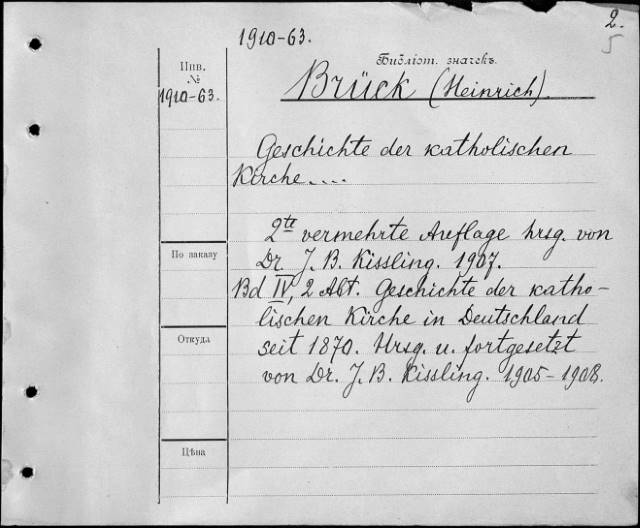 2.
5
1910-63.
Библіот. значекъ.
Инв.
№
1910-63.
Brück (Heinrich).
Geschichte der katholischen
Kirche....
2te vermehrte Auflage hrsg. von
Dr. J. B. Kissling. 1907.
Bd IV, 2 Abt. Geschichte der katho-
lischen Kirche in Deutschland
seit 1870. Hrsg. u. fortgesetzt
von Dr. J. B. Kissling. 1905-1908.
По заказу
Откуда
Цѣна